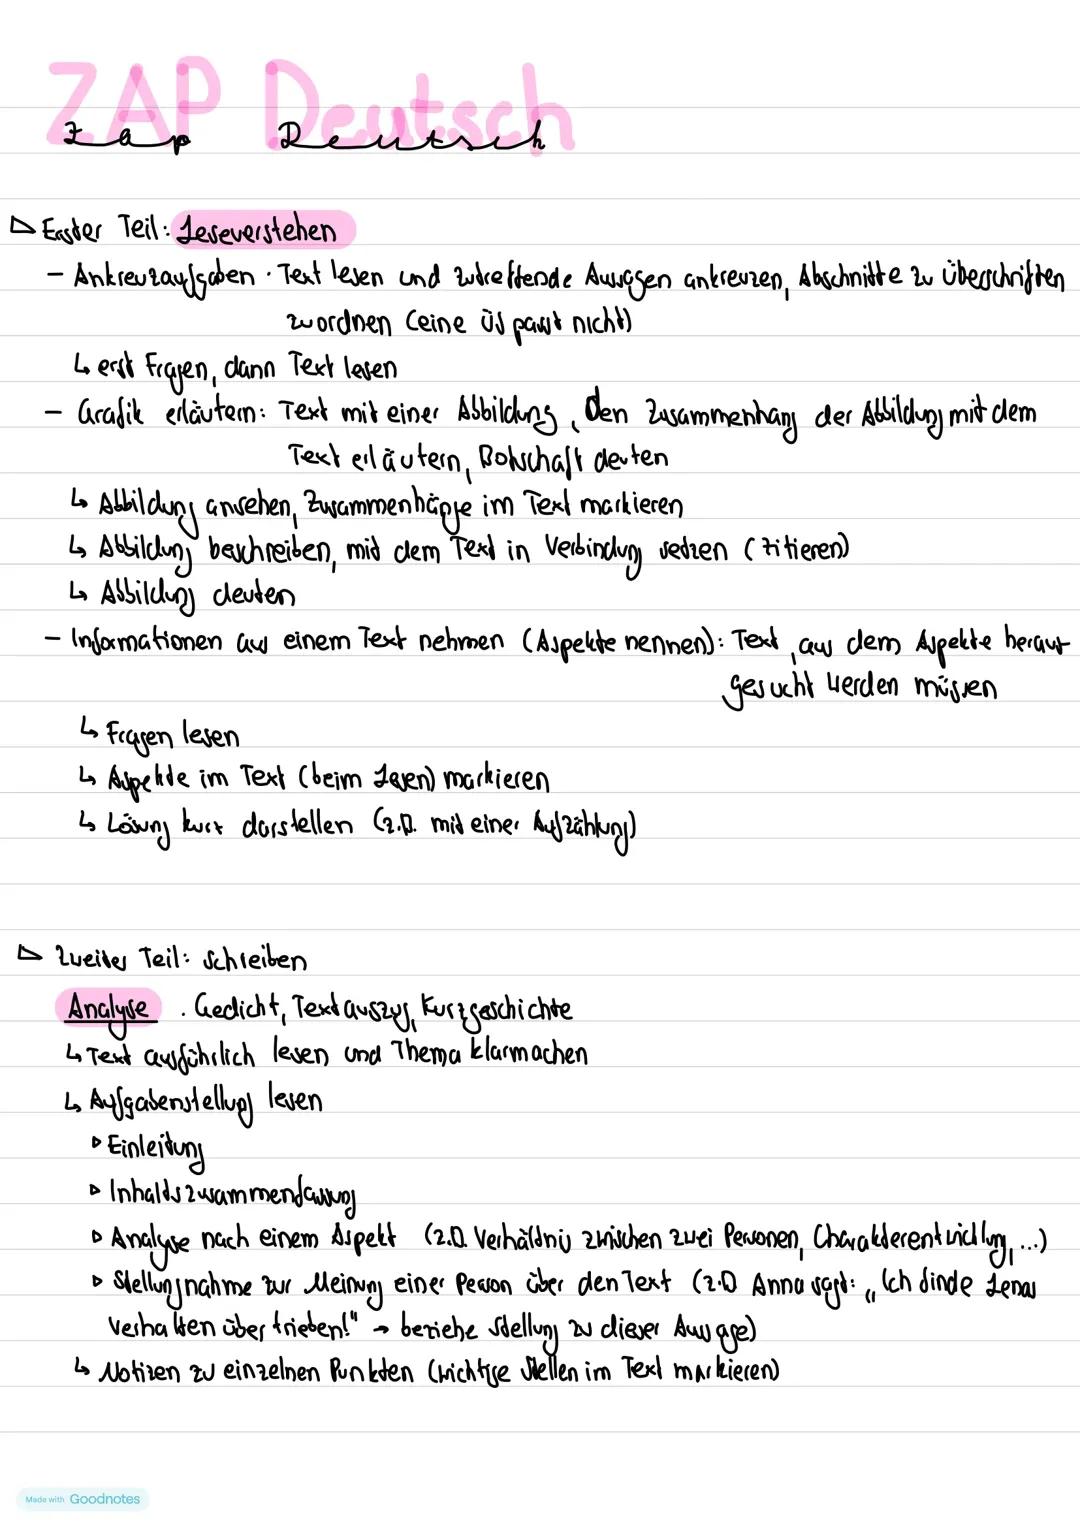 ZAP Deutsch
Zap Deutsch
Erster Teil: Leseverstehen
- Ankreuzaufgaben: Text lesen und zutreffende Aussagen ankreuzen, Abschnitte zu Überschriften
zuordnen (eine ÜS passt nicht)
↳ erst Fragen, dann Text lesen
- Grafik erläutern: Text mit einer Abbildung, Den Zusammenhang der Abbildung mit dem
Text erläutern, Botschaft deuten
↳ Abbildung ansehen, Zusammenhänge im Text markieren
↳ Abbildung beschreiben, mit dem Text in Verbindung setzen (zitieren)
↳ Abbildung deuten
- Informationen aus einem Text nehmen (Aspekte nennen): Text, aus dem Aspekte heraus
gesucht werden müssen
↳ Fragen lesen
↳ Aspekte im Text (beim Lesen) markieren
↳ Lösung kurz darstellen (z.B. mit einer Aufzählung)
Zweiter Teil: Schreiben
Analyse: Gedicht, Textauszug, Kurzgeschichte
↳ Text ausführlich lesen und Thema klarmachen
↳ Aufgabenstellung lesen
▹ Einleitung
▹ Inhaltszusammenfassung
▹ Analyse nach einem Aspekt (z.B. Verhältnis zwischen zwei Personen, Charakterentwicklung, ...)
▹ Stellungnahme zur Meinung einer Person über den Text (z.B Anna sagt: „Ich finde Lenas
Verhalten übertrieben!" → beziehe Stellung zu dieser Aussage)
↳ Notizen zu einzelnen Punkten (wichtige Stellen im Text markieren)
Made with Goodnotes